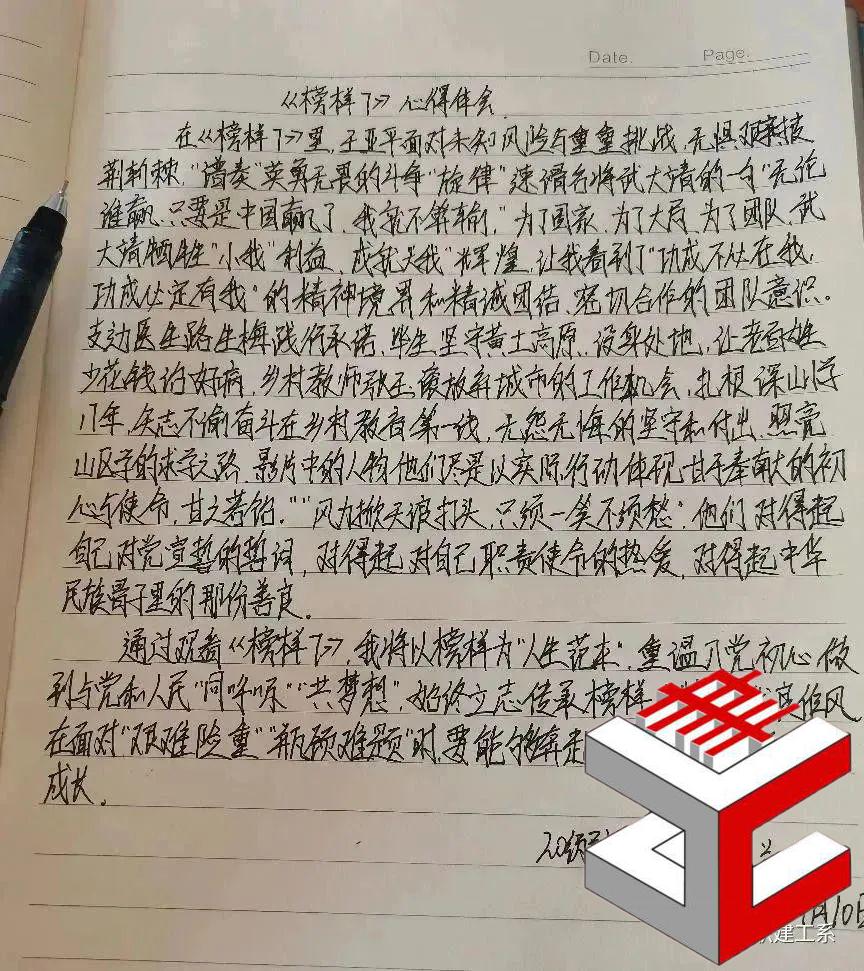 Date. Page.
《榜样7》心得体会
在《榜样7》里,王亚平面对未知风险与重重挑战,无惧艰辛披
荆斩棘,"谱奏"英勇无畏的斗争"旋律"速滑名将武大靖的一句"无论
谁赢,只要是中国赢了,我就不算输"为了国家、为了大局、为了团队,武
大靖牺牲"小我"利益,成就"大我"辉煌,让我看到了"功成不必在我,
功成必定有我"的精神境界和精诚团结、密切合作的团队意识。
支边医生路生梅践行承诺,毕生坚守黄土高原,设身处地,让老百姓
少花钱治好病,乡村教师张玉滚放弃城市的工作机会,扎根深山小学
17年,矢志不渝奋斗在乡村教育第一线,无怨无悔的坚守和付出,照亮
山区学的求学之路,影片中的人物他们尽是以实际行动体现甘于奉献大的初
心与使命,甘之若饴,""风力掀天浪打头,只须一笑不须愁"他们对得起
自己对党宣誓的誓词,对得起对自己职责使命的热爱,对得起中华
民族骨子里的那份善良。
通过观看《榜样7》,我将以榜样为"人生范本",重温入党初心做
到与党和人民"同呼吸""共梦想",始终立志传承榜样 良作风
在面对"艰难险重""瓶颈难题"时,要能够奔走
成长。
月10日
建工系